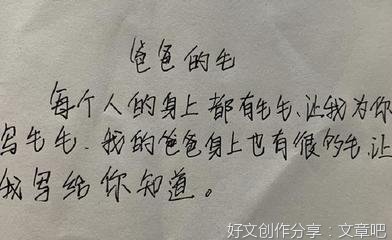 爸爸的毛
每个人的身上都有毛毛、让我为你
写毛毛. 我的爸爸身上也有很多毛.让
我写给你知道。
好文创作分享：文章吧